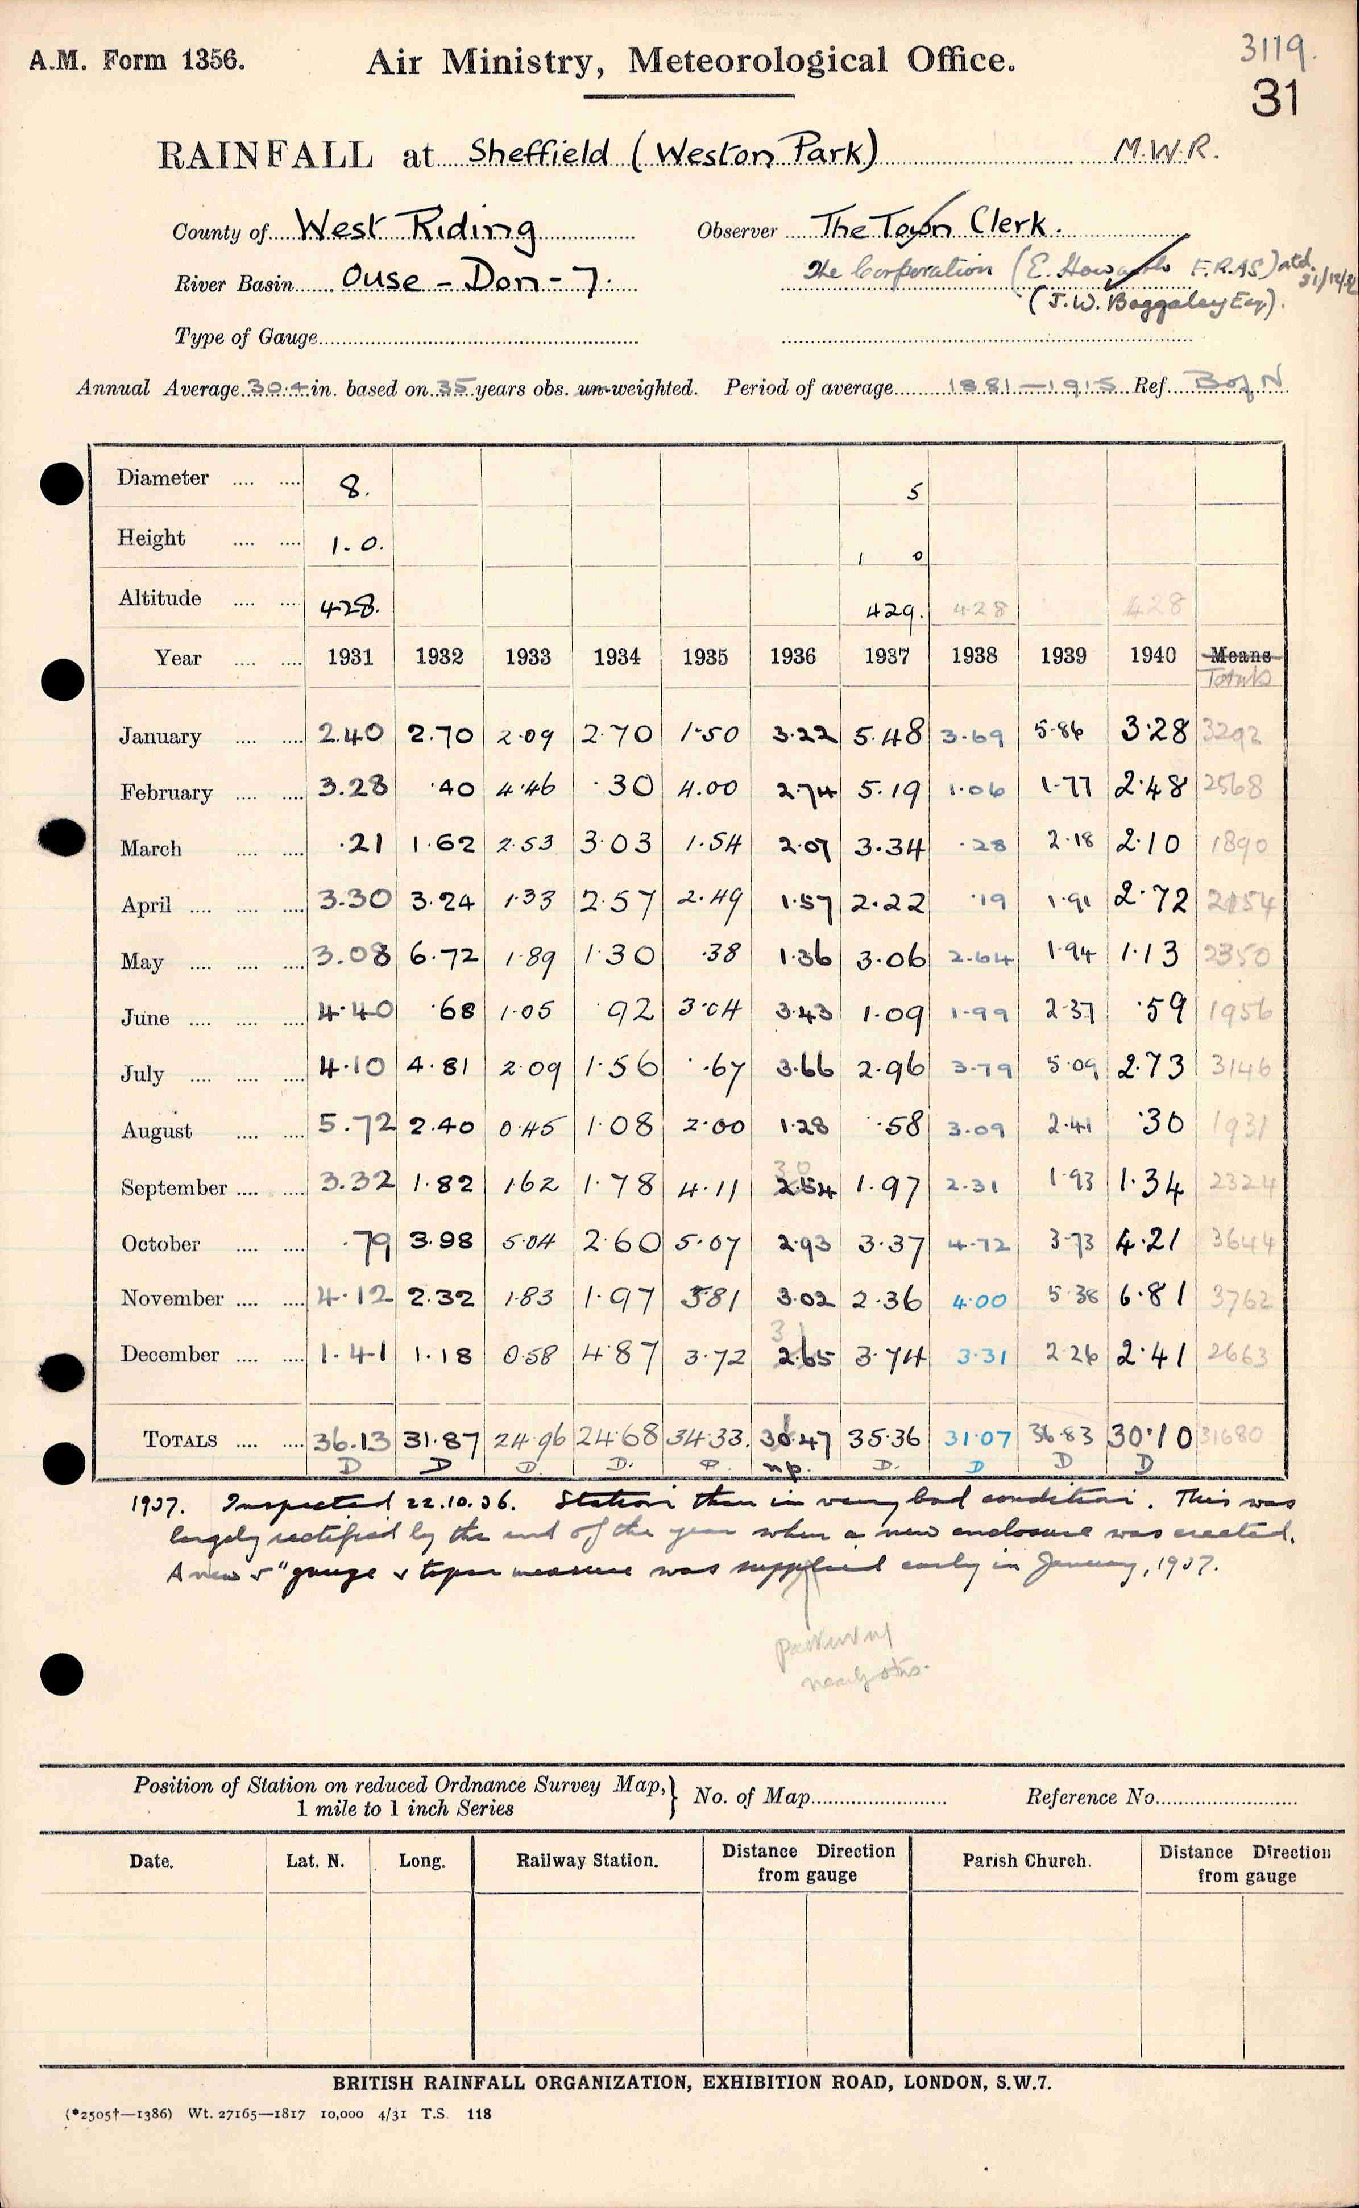 A.M. Form 1356. Air Ministry, Meteorological Office. 3119.
31
RAINFALL at Sheffield (Weston Park) M.W.R.
County of West Riding Observer The Town Clerk.
The Corporation (E. Howarth F.R.A.S)
River Basin Ouse - Don - 7.
(J.W. Baggaley Esq).
Type of Gauge
Annual Average 30.4 in. based on 35 years obs. un-weighted. Period of average 1881-1915 Ref. B of N
Diameter 8. 5
Height 1. 0. 1 0
Altitude 428. 429. 428 428
Year 1931 1932 1933 1934 1935 1936 1937 1938 1939 1940 Means Totals
January 2.40 2.70 2.09 2.70 1.50 3.22 5.48 3.69 5.86 3.28 3292
February 3.28 .40 4.46 .30 4.00 2.74 5.19 1.06 1.77 2.48 2568
March .21 1.62 2.53 3.03 1.54 2.07 3.34 .28 2.18 2.10 1890
April 3.30 3.24 1.33 2.57 2.49 1.57 2.22 .19 1.91 2.72 2154
May 3.08 6.72 1.89 1.30 .38 1.36 3.06 2.64 1.94 1.13 2350
June 4.40 .68 1.05 .92 3.04 3.43 1.09 1.99 2.37 .59 1956
July 4.10 4.81 2.09 1.56 .67 3.66 2.96 3.79 5.09 2.73 3146
August 5.72 2.40 0.45 1.08 2.00 1.28 .58 3.09 2.41 .30 1931
30
September 3.32 1.82 1.62 1.78 4.11 2.54 1.97 2.31 1.93 1.34 2324
October .79 3.98 5.04 2.60 5.07 2.93 3.37 4.72 3.73 4.21 3644
November 4.12 2.32 1.83 1.97 5.81 3.02 2.36 4.00 5.38 6.81 3762
31
December 1.41 1.18 0.58 4.87 3.72 2.65 3.74 3.31 2.26 2.41 2663
TOTALS 36.13 31.87 24.96 24.68 34.33. 30.47 35.36 31.07 36.83 30.10 31680
D D D. D. P. n.p. D. D D D
1937. Inspected 22.10.36. Station then in very bad condition. This was
largely rectified by the end of the year when a new enclosure was erected.
A new 5" gauge & taper measure was supplied early in January, 1937.
Position of Station on reduced Ordnance Survey Map, 1 mile to 1 inch Series } No. of Map Reference No.
Date. Lat. N. Long. Railway Station. Distance Direction from gauge Parish Church. Distance Direction from gauge
BRITISH RAINFALL ORGANIZATION, EXHIBITION ROAD, LONDON, S.W.7.
(*2505†—1386) Wt. 27165—1817 10,000 4/31 T.S. 118